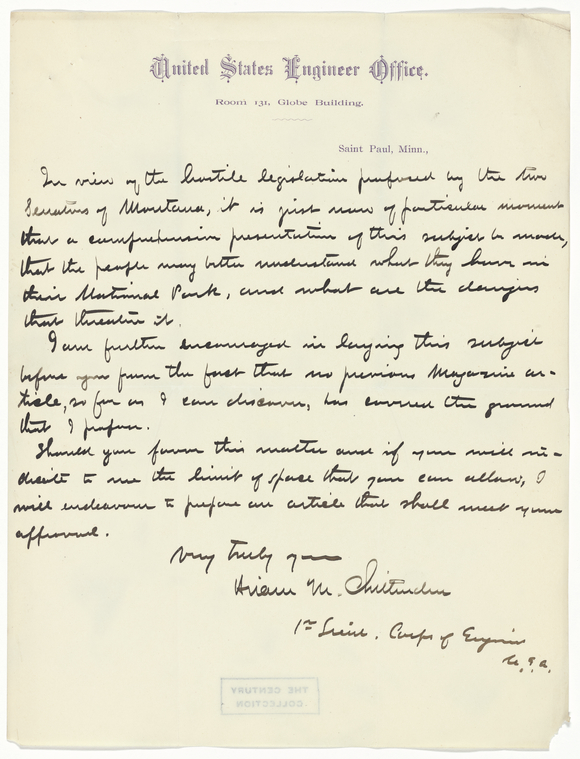 United States Engineer Office.
Room 131, Globe Building.
Saint Paul, Minn.,
In view of the hostile legislation proposed by the two
Senators of Montana, it is just now of particular moment
that a comprehensive presentation of this subject be made,
that the people may better understand what they have in
their National Park, and what are the dangers
that threaten it.
I am further encouraged in laying this subject
before you from the fact that no previous Magazine ar-
ticle, so far as I can discover, has covered the ground
that I propose.
Should you favor this matter and if you will in-
dicate to me the limit of space that you can allow, I
will endeavour to prepare an article that shall meet your
approval.
Very truly yours
Hiram M. Chittenden
1st Lieut. Corps of Engineers
U.S.A.
THE CENTURY
COLLECTION